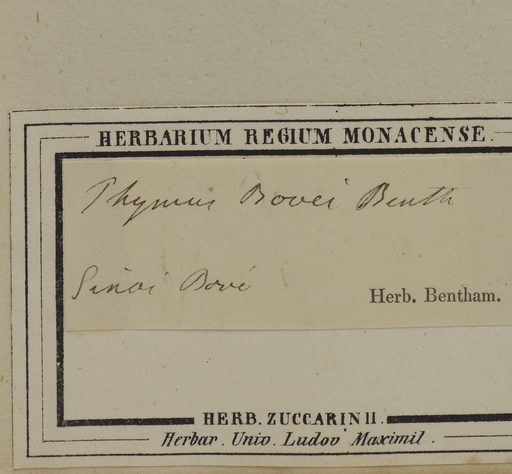 HERBARIUM REGIUM MONACENSE.
Thymus Bovei Benth
Sinai Bové
Herb. Bentham.
HERB. ZUCCARINII.
Herbar. Univ. Ludov Maximil.